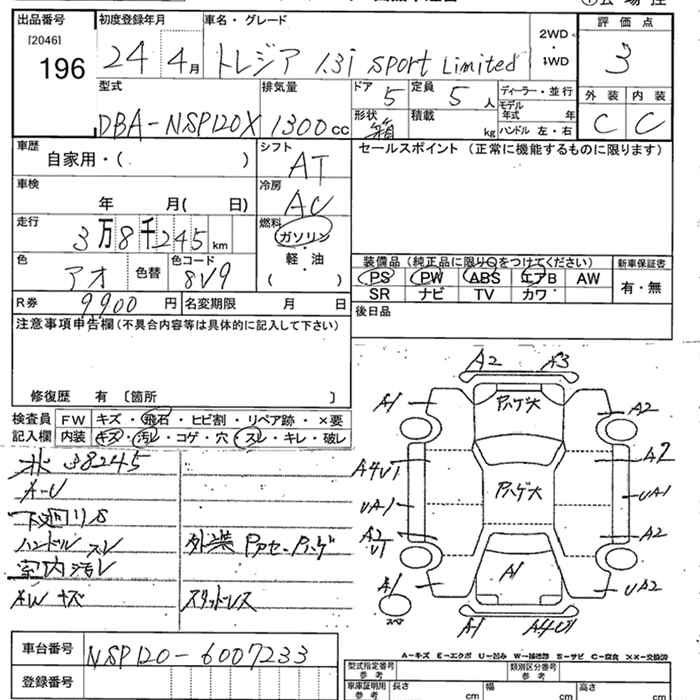 出品番号 初度登録年月 車名・グレード 評価点
[2046]
196
24年 4月 トレジア 1.3i Sport Limited 2WD・4WD 3
型式 排気量 ドア 5 定員 5人 ディーラー・並行 外装 内装
DBA-NSP120X 1300cc 形状 箱 積載 kg モデル年式 年 ハンドル 左・右 C C
車歴 自家用・( ) シフト AT セールスポイント(正常に機能するものに限ります)
車検 年 月( 日) 冷房 AC
走行 3万8千245km 燃料 ガソリン・軽・油 ( )
色 アオ 色替 色コード 8V9
装備品(純正品に限り○をつけてください) 新車保証書
PS PW ABS エアB AW 有・無
SR ナビ TV カワ
R券 9,900円 名変期限 月 日 後日品
注意事項申告欄(不具合内容等は具体的に記入して下さい)
修復歴 有 〔箇所 〕
検査員 FW キズ・飛石・ヒビ割・リペア跡・×要
記入欄 内装 キズ・汚レ・コゲ・穴・スレ・キレ・破レ
38245
A-U
下廻りS
ハンドル スレ 外装 Pアセ-Pハゲ
室内汚レ
AW キズ スタッドレス
A2 A3
A1 Pハゲ大 A2
A4U1 A2
UA1 Pハゲ大 UA1
A2 U1 A2
A1 A1 UA2
スペア A1 A4U1
車台番号 NSP120-6007233
登録番号
A-キズ E-エクボ U-凹み W-補修跡 S-サビ C-腐食 ××-交換済
型式指定番号 参考 類別区分番号 参考
車庫証明用 参考 長さ cm 幅 cm 高さ cm